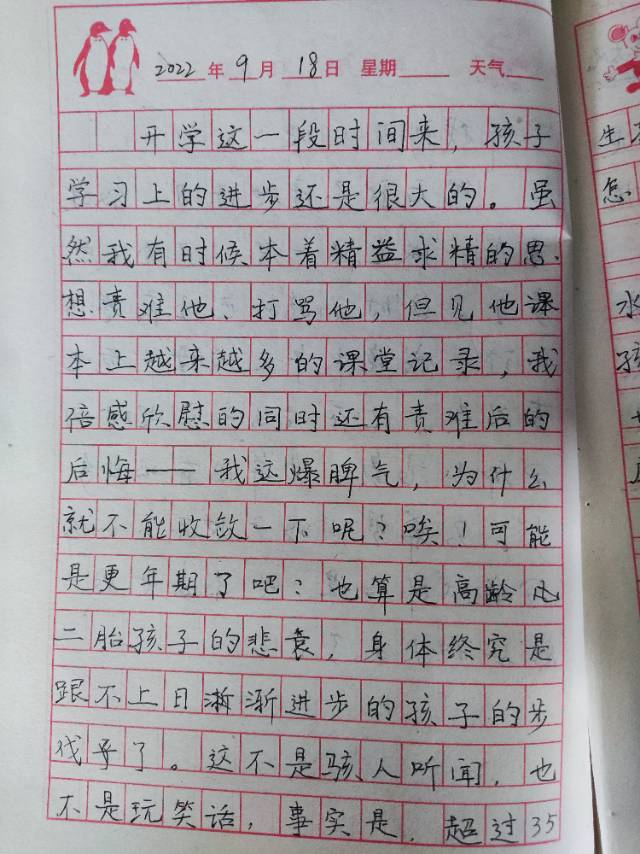 2022年9月18日 星期 天气
开学这一段时间来，孩子
学习上的进步还是很大的。虽
然我有时候本着精益求精的思
想责难他、打骂他，但见他课
本上越来越多的课堂记录，我
倍感欣慰的同时还有责难后的
后悔——我这爆脾气，为什么
就不能收敛一下呢？唉！可能
是更年期了吧？也算是高龄
二胎孩子的悲哀，身体终究是
跟不上日渐渐进步的孩子的步
伐了。这不是骇人听闻，也
不是玩笑话，事实是，超过35
生
怎
水
孩